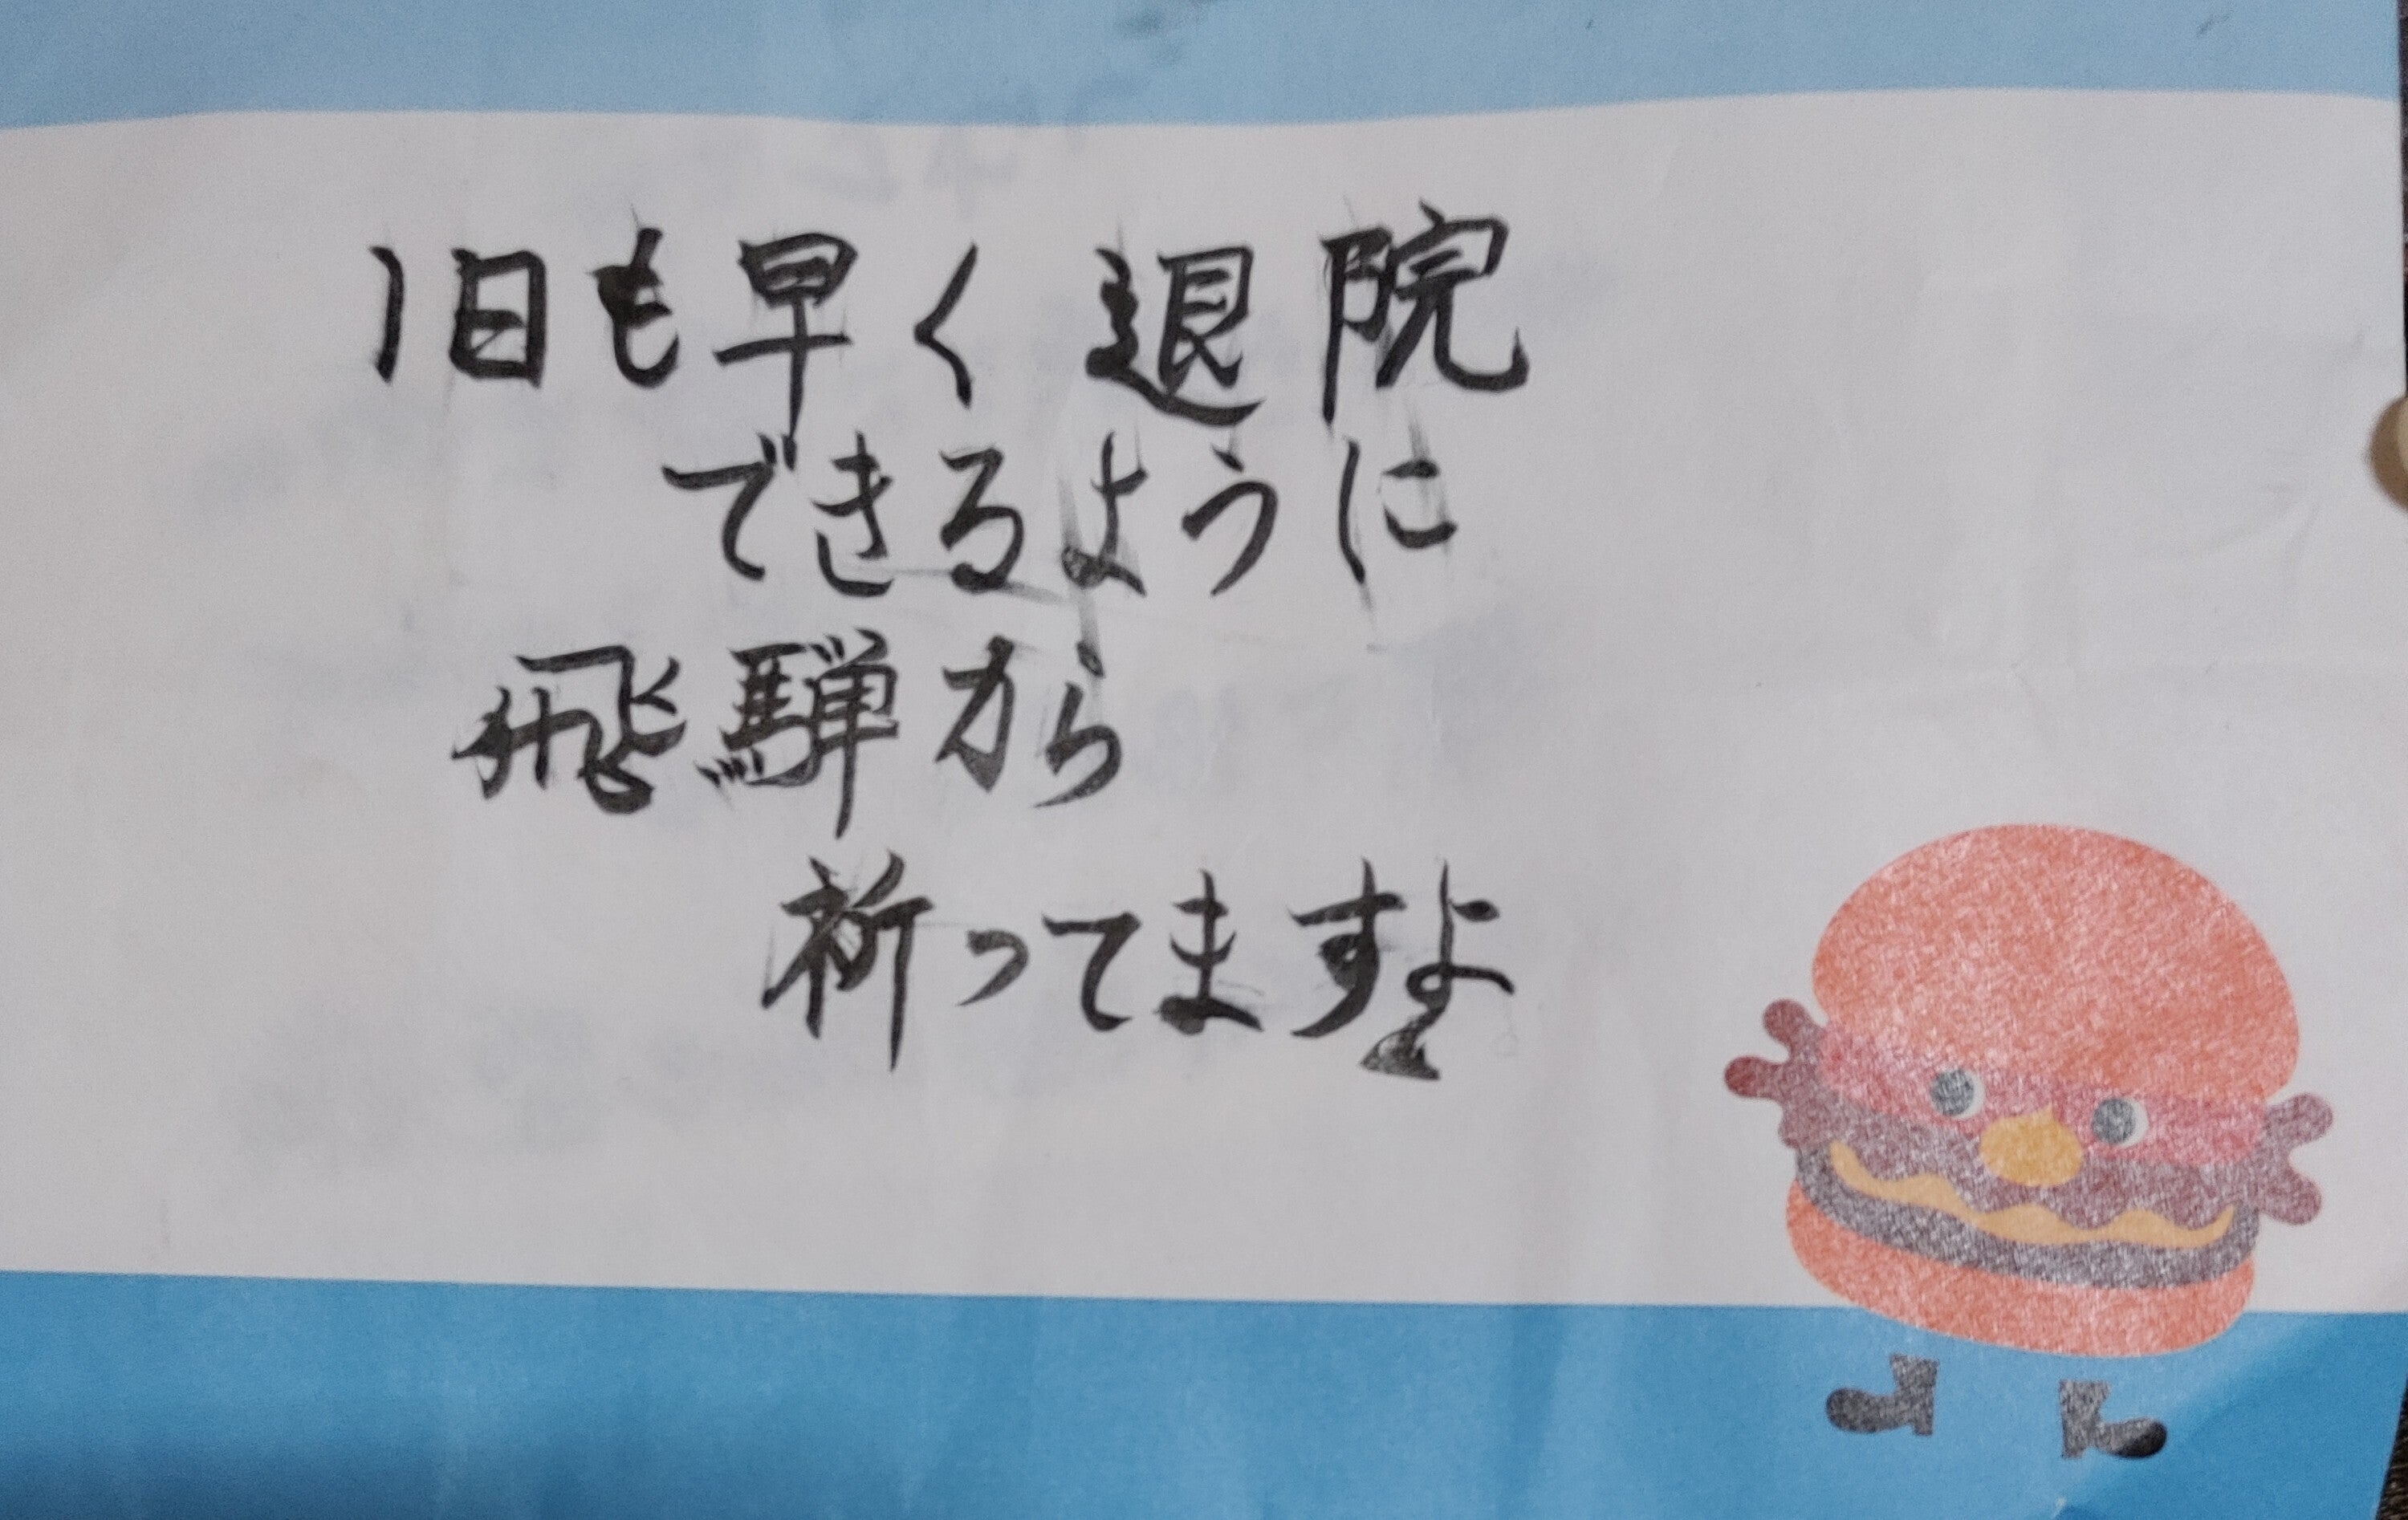 1日も早く退院
できるように
飛騨から
祈ってますよ